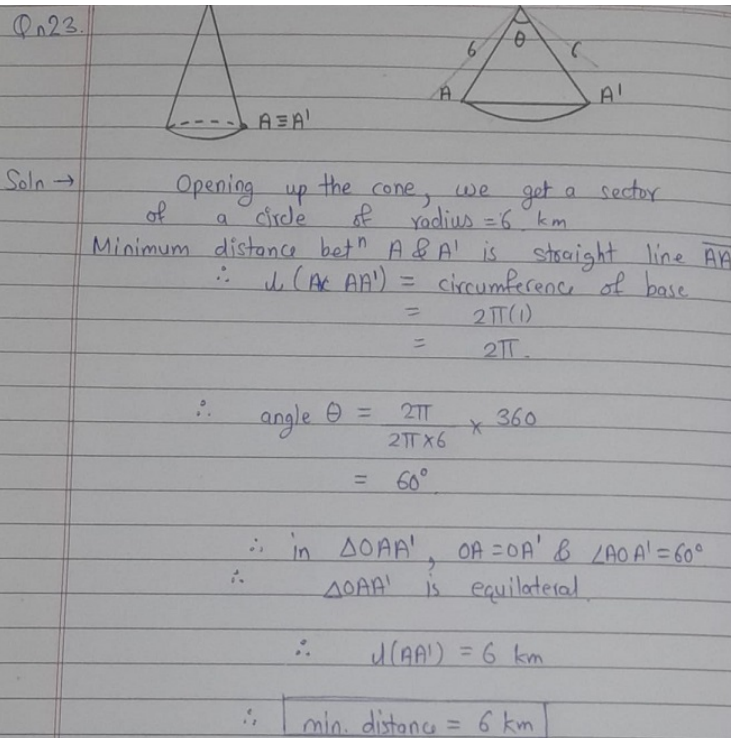 Qn23.
A≡A'
6 θ 6
A A'
Soln → Opening up the cone, we get a sector
of a circle of radius = 6 km
Minimum distance betⁿ A & A' is straight line
∴ l(Arc AA') = circumference of base
= 2π(1)
= 2π.
∴ angle θ = 2π / 2π×6 × 360
= 60°
∴ in △OAA', OA = OA' & ∠AOA' = 60°
∴ △OAA' is equilateral.
∴ l(AA') = 6 km
∴ min. distance = 6 km